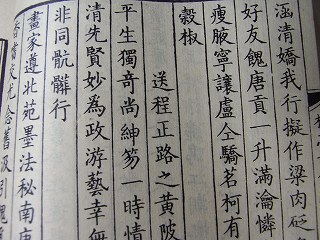 清嬌我行擬作梁肉砭
好友餽唐貢一升滿瀹憐
瘦腋寧讓盧仝驕茗柯有
榖椒
送程正路之黄陂
平生獨奇尚紳笏一時情
清先賢妙為政游藝幸無
非同骯髒行
畫家遵北苑墨法秘南唐